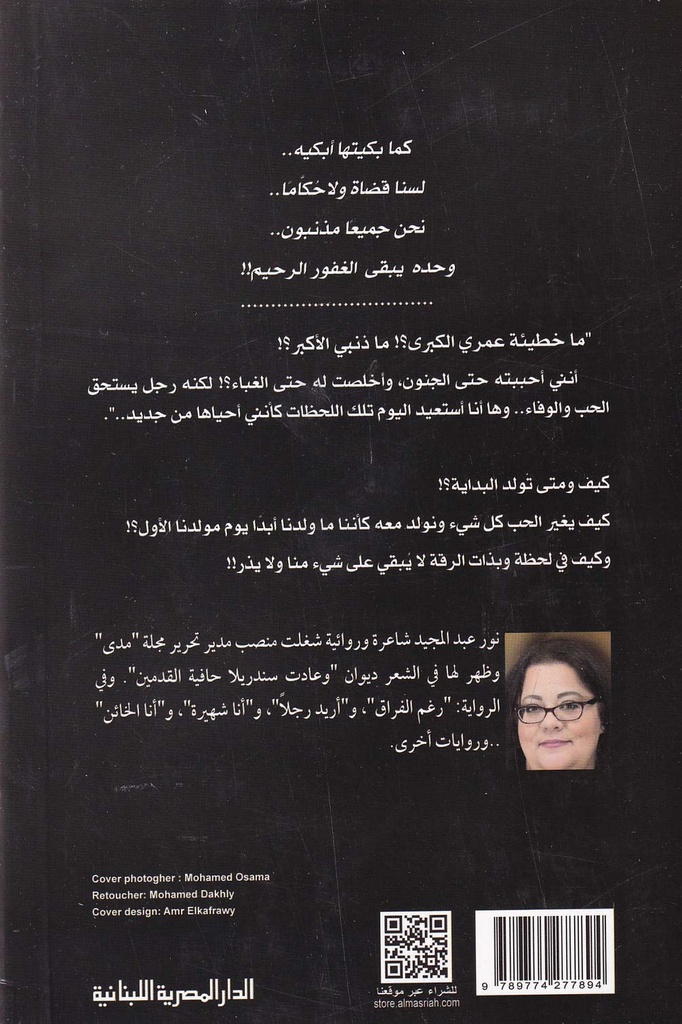 كما بكيتها أبكيه..
لسنا قضاة ولا حُكّامًا..
نحن جميعًا مذنبون..
وحده يبقى الغفور الرحيم!!
................................
"ما خطيئة عمري الكبرى؟! ما ذنبي الأكبر؟!
أنني أحببته حتى الجنون، وأخلصت له حتى الغباء؟! لكنه رجل يستحق
الحب والوفاء.. وها أنا أستعيد اليوم تلك اللحظات كأنني أحياها من جديد..".
كيف ومتى تُولد البداية؟!
كيف يغير الحب كل شيء ونولد معه كأننا ما ولدنا أبدًا يوم مولدنا الأول؟!
وكيف في لحظة وبذات الرقة لا يُبقي على شيء منا ولا يذر!!
نور عبد المجيد شاعرة وروائية شغلت منصب مدير تحرير مجلة "مدى"
وظهر لها في الشعر ديوان "وعادت سندريلا حافية القدمين". وفي
الرواية: "رغم الفراق"، و"أريد رجلاً"، و"أنا شهيرة"، و"أنا الخائن"
..وروايات أخرى.
Cover photogher : Mohamed Osama
Retoucher: Mohamed Dakhly
Cover design: Amr Elkafrawy
الدار المصرية اللبنانية
للشراء عبر موقعنا
store.almasriah.com
9 789774 277894